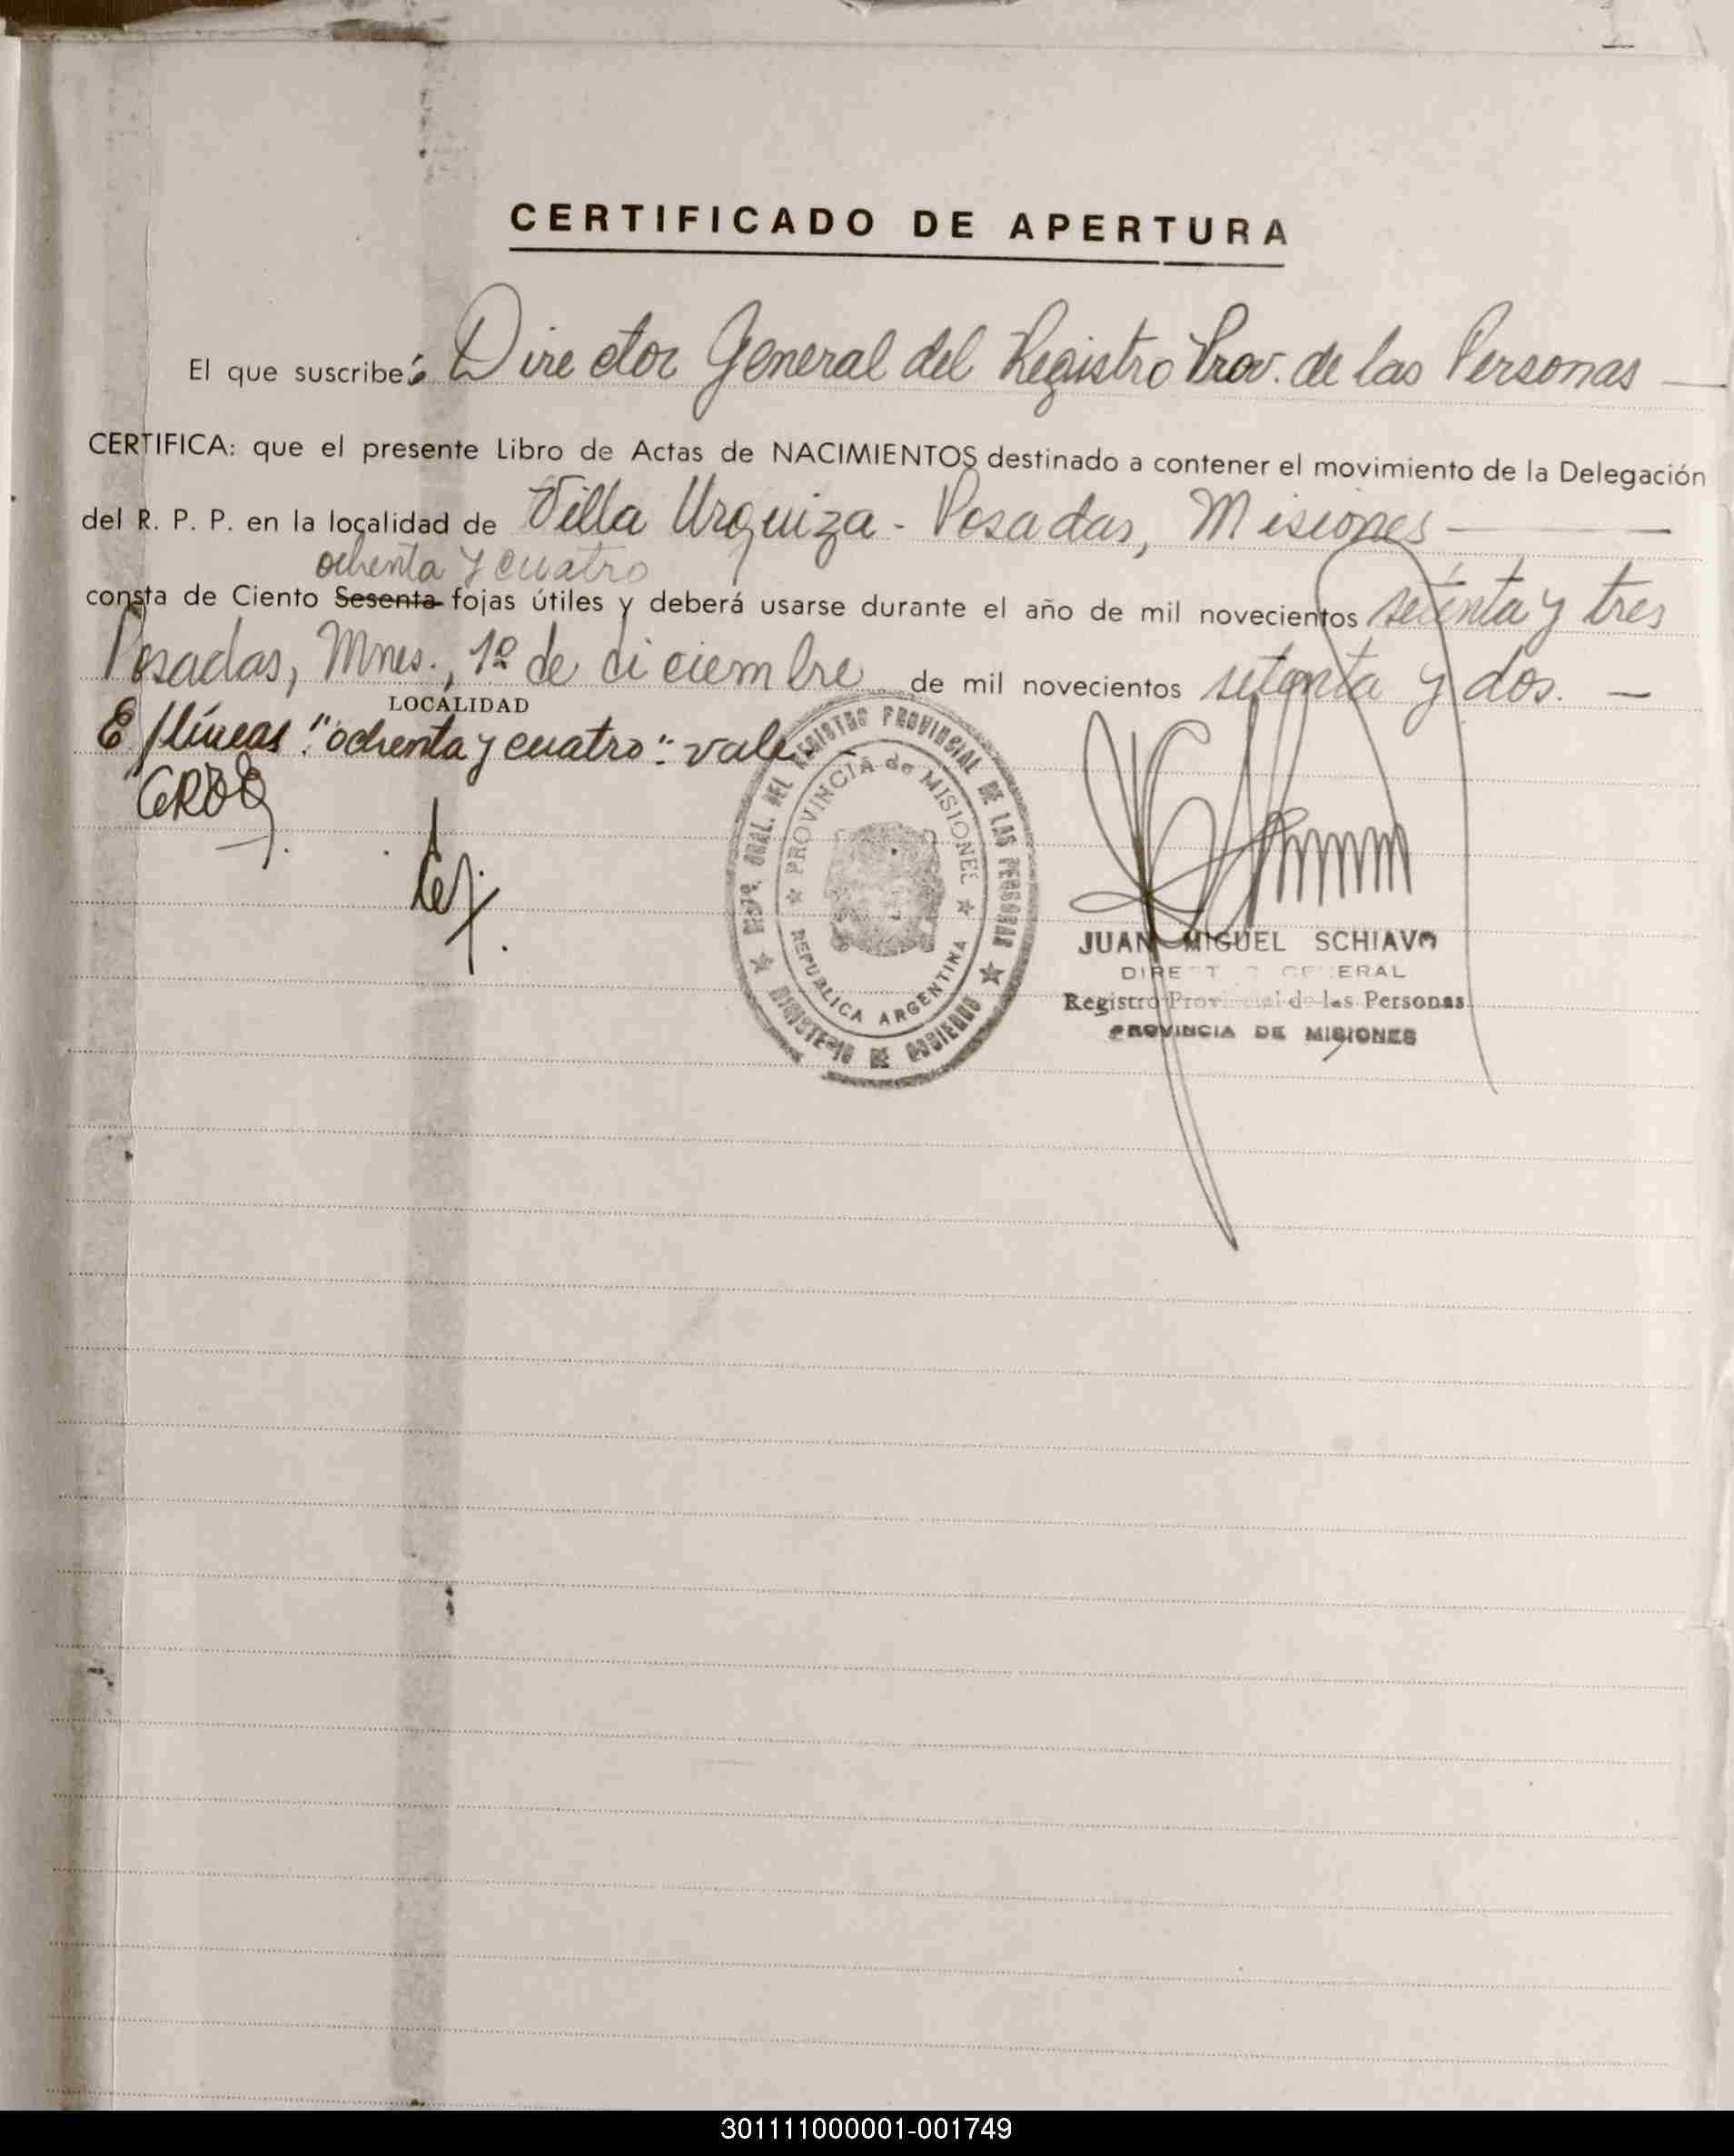 1
CERTIFICADO DE APERTURA
El que suscribe: Director General del Registro Prov. de las Personas
CERTIFICA: que el presente Libro de Actas de NACIMIENTOS destinado a contener el movimiento de la Delegación
del R. P. P. en la localidad de Villa Urquiza - Posadas, Misiones
ochenta y cuatro
consta de Ciento Sesenta fojas útiles y deberá usarse durante el año de mil novecientos setenta y tres
Posadas, Mnes., 1º de diciembre de mil novecientos setenta y dos. -
LOCALIDAD
E/líneas: "ochenta y cuatro": vale
DEL REGISTRO PROVINCIAL DE LAS PERSONAS
MINISTERIO DE GOBIERNO
PROVINCIA de MISIONES
REPUBLICA ARGENTINA
JUAN MIGUEL SCHIAVO
Registro Provincial de las Personas
PROVINCIA DE MISIONES
301111000001-001749